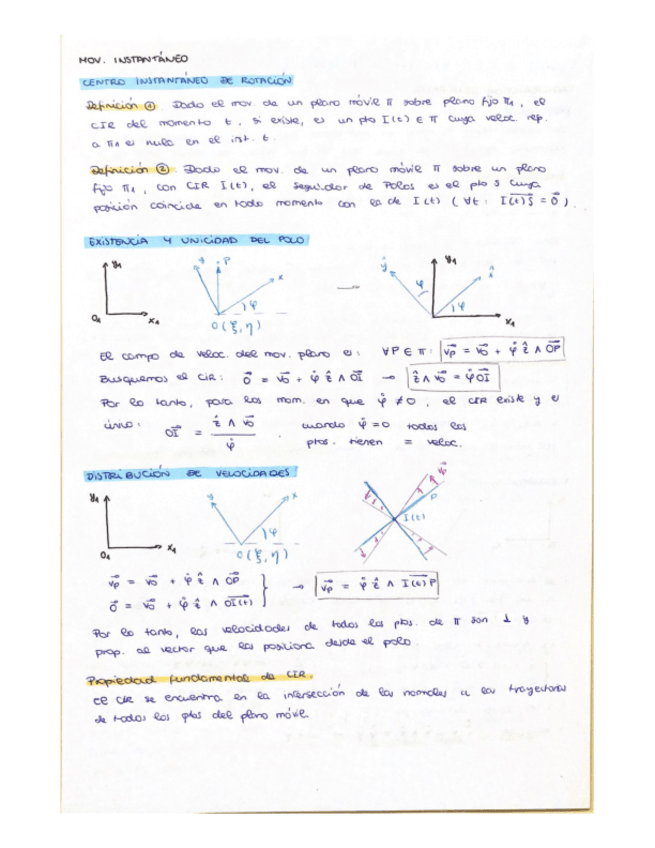 MOV. INSTANTÁNEO
CENTRO INSTANTÁNEO DE ROTACIÓN
Definición ①. Dado el mov. de un plano móvil π sobre plano fijo π₁, el
CIR del momento t, si existe, es un pto I(t) ∈ π cuya veloc. resp.
a π₁ es nula en el inst. t.
Definición ②. Dado el mov. de un plano móvil π sobre un plano
fijo π₁, con CIR I(t), el seguidor de Polos es el pto S cuya
posición coincide en todo momento con la de I(t) (∀t: I(t)S = 0⃗).
EXISTENCIA Y UNICIDAD DEL POLO
y₁ y P x φ ŷ y₁ x̂ φ φ
O₁ x₁ O(ξ,η) x₁
El campo de veloc. del mov. plano es: ∀P∈π: v⃗p = v⃗o + φ̇ ẑ ∧ OP
Busquemos el CIR: 0⃗ = v⃗o + φ̇ ẑ ∧ OI → ẑ ∧ v⃗o = φ̇ OI
Por lo tanto, para los mom. en que φ̇ ≠ 0, el CIR existe y es
único: OI = ẑ ∧ v⃗o / φ̇ . cuando φ̇ = 0 todos los
ptos. tienen = veloc.
DISTRIBUCIÓN DE VELOCIDADES
y₁ y x φ v⃗p P I(t)
O₁ x₁ O(ξ,η)
v⃗p = v⃗o + φ̇ ẑ ∧ OP
0⃗ = v⃗o + φ̇ ẑ ∧ OI(t) } → v⃗p = φ̇ ẑ ∧ I(t)P
Por lo tanto, las velocidades de todos los ptos. de π son ⊥ y
prop. al vector que los posiciona desde el polo.
Propiedad fundamental de CIR.
El CIR se encuentra en la intersección de las normales a las trayectorias
de todos los ptos del plano móvil.